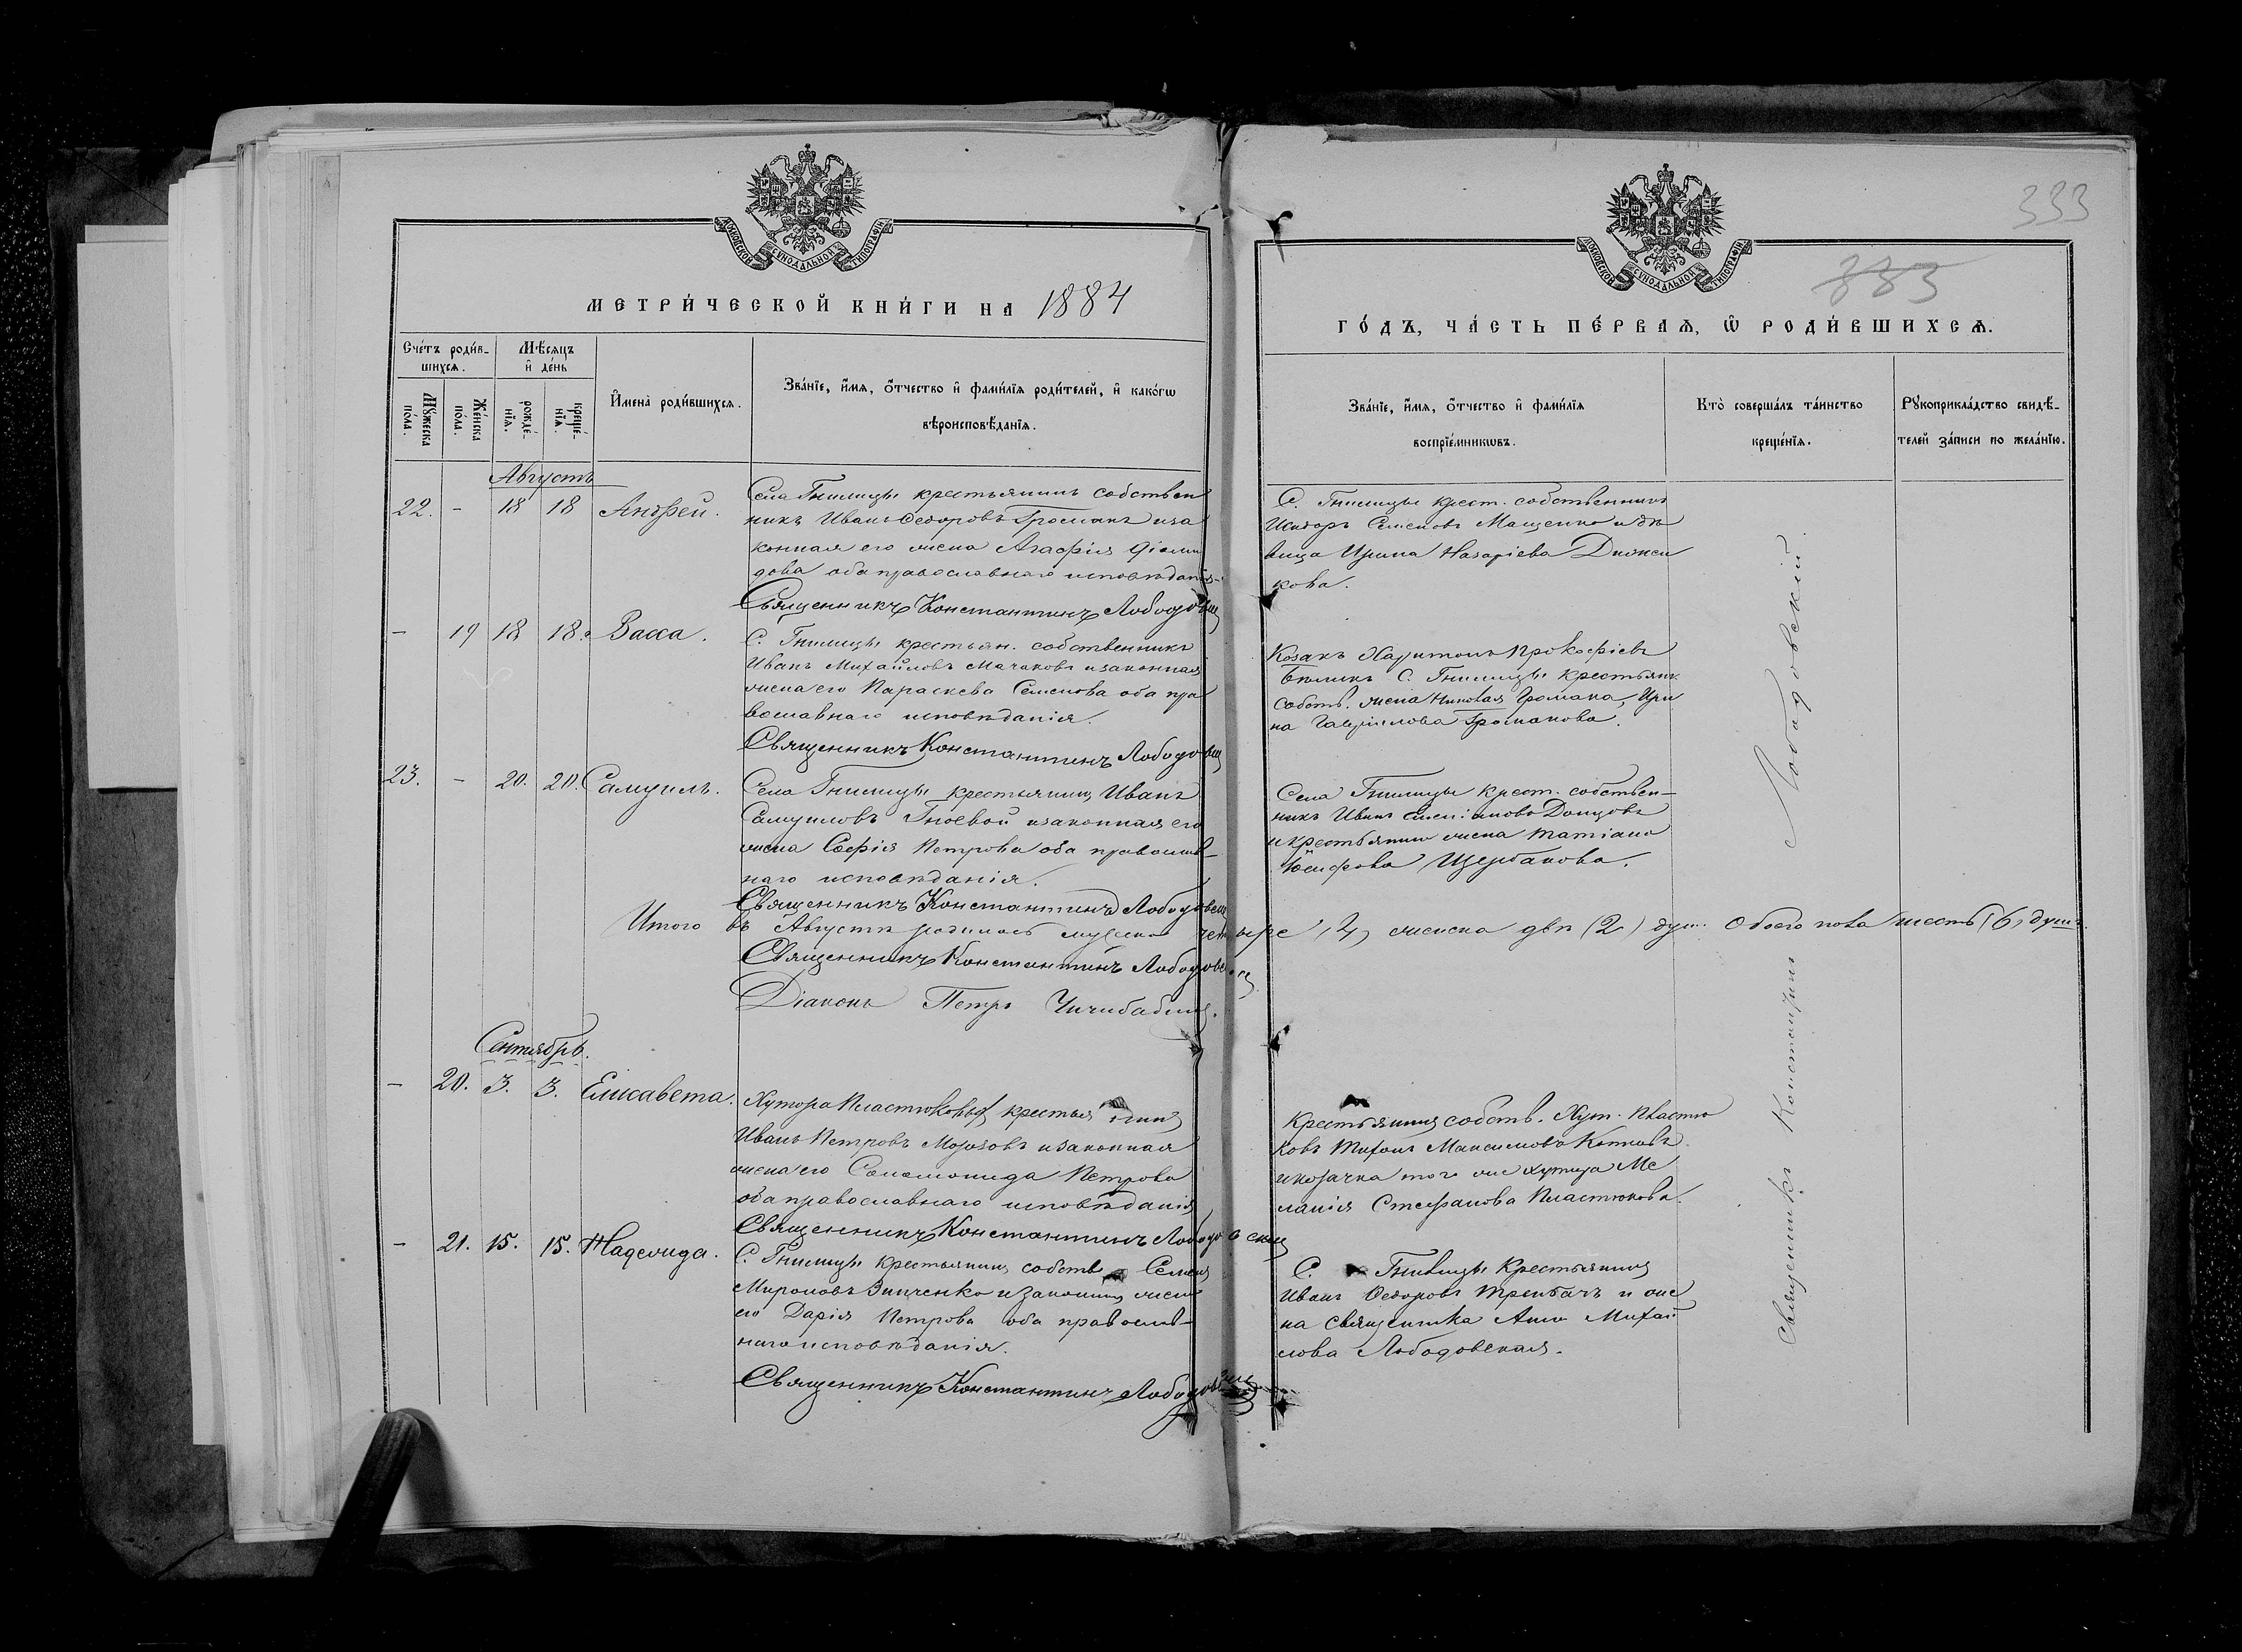 333
333
МОСКОВСКОЙ СѴНОДАЛЬНОЙ ТИПОГРАФІИ
МЕТРИ́ЧЕСКОЙ КНИ́ГИ НА 1884
МОСКОВСКОЙ СѴНОДАЛЬНОЙ ТИПОГРАФІИ
ГО́ДЪ, ЧА́СТЬ ПЕ́РВАѦ, Ѡ҃ РОДИ́ВШИХСѦ.
Сче́тъ роди́в-
шихсѧ.
Мꙋ́жеска по́ла.
Же́нска по́ла.
Мѣ́сѧцъ и҆ де́нь
рожде́-нїѧ.
креще́-нїѧ.
И҆мена̀ роди́вшихсѧ.
Зва́нїе, и҆́мѧ, ѻ҆́тчество и҆ фами́лїѧ роди́телей, и҆ како́гѡ
вѣроисповѣ́данїѧ.
Зва́нїе, и҆́мѧ, ѻ҆́тчество и҆ фами́лїѧ
воспрїе́мникѡвъ.
Кто̀ соверша́лъ та́инство
креще́нїѧ.
Рꙋкоприкла́дство свидѣ́-
телей за́писи по жела́нїю.
Августъ
22. - 18 18 Андрей.
Села Гнилицы крестьянинъ собствен
никъ Иванъ Федоровъ Громакъ и за
конная его жена Агафія Діоми
дова оба православнаго исповѣданія
Священникъ Константинъ Лободовскій
С. Гнилицы крест. собственникъ
Исидоръ Семеновъ Мащенко и дѣ
вица Ирина Назаріева
кова.
- 19 18 18. Васса.
С. Гнилицы крестьян. собственникъ
Иванъ Михайловъ и законная
жена его Параскева Семенова оба пра
вославнаго исповѣданія.
Священникъ Константинъ Лободовскій
Козакъ Харитонъ Прокофіевъ
Бѣликъ С. Гнилицы крестьян.
собств. жена Николая Громака, Ири
на Гавріилова Громакова.
23. - 20. 20. Самуилъ.
Села Гнилицы крестьянинъ Иванъ
Самуиловъ Гноевой и законная его
жена Софія Петрова оба православ-
наго исповѣданія.
Священникъ Константинъ Лободовскій
Села Гнилицы крест. собствен-
никъ Иванъ Донцовъ
и крестьянина жена Татіана
Іосифова Щербакова.
Итого въ Августѣ родилось мужеска четыре (4) женска двѣ (2) душ. обоего пола шесть (6) душъ.
Священникъ Константинъ Лободовскій
Діаконъ Петръ Чичибабинъ.
Сентябрь.
- 20. 3. 3. Елисавета.
Хутора Пластюковыхъ крестьянинъ
Иванъ Петровъ Морозовъ и законная
жена его Соломонида Петрова
оба православнаго исповѣданія
Священникъ Константинъ Лободовскій
Крестьянинъ собств. Хут. Пластю
ковъ Тихонъ Максимовъ
и козачка того же хутора Ме
ланія Стефанова Пластюкова.
- 21. 15. 15.
С. Гнилицы крестьянинъ собств. Семенъ
Мироновъ Зинченко и законная жена
его Дарія Петрова оба православ-
наго исповѣданія.
Священникъ Константинъ Лободовскій
С. Гнилицы Крестьянинъ
Иванъ Федоровъ Трембачъ и же
на священника Анна Михай
лова Лободовская.
Священникъ Константинъ Лободовскій